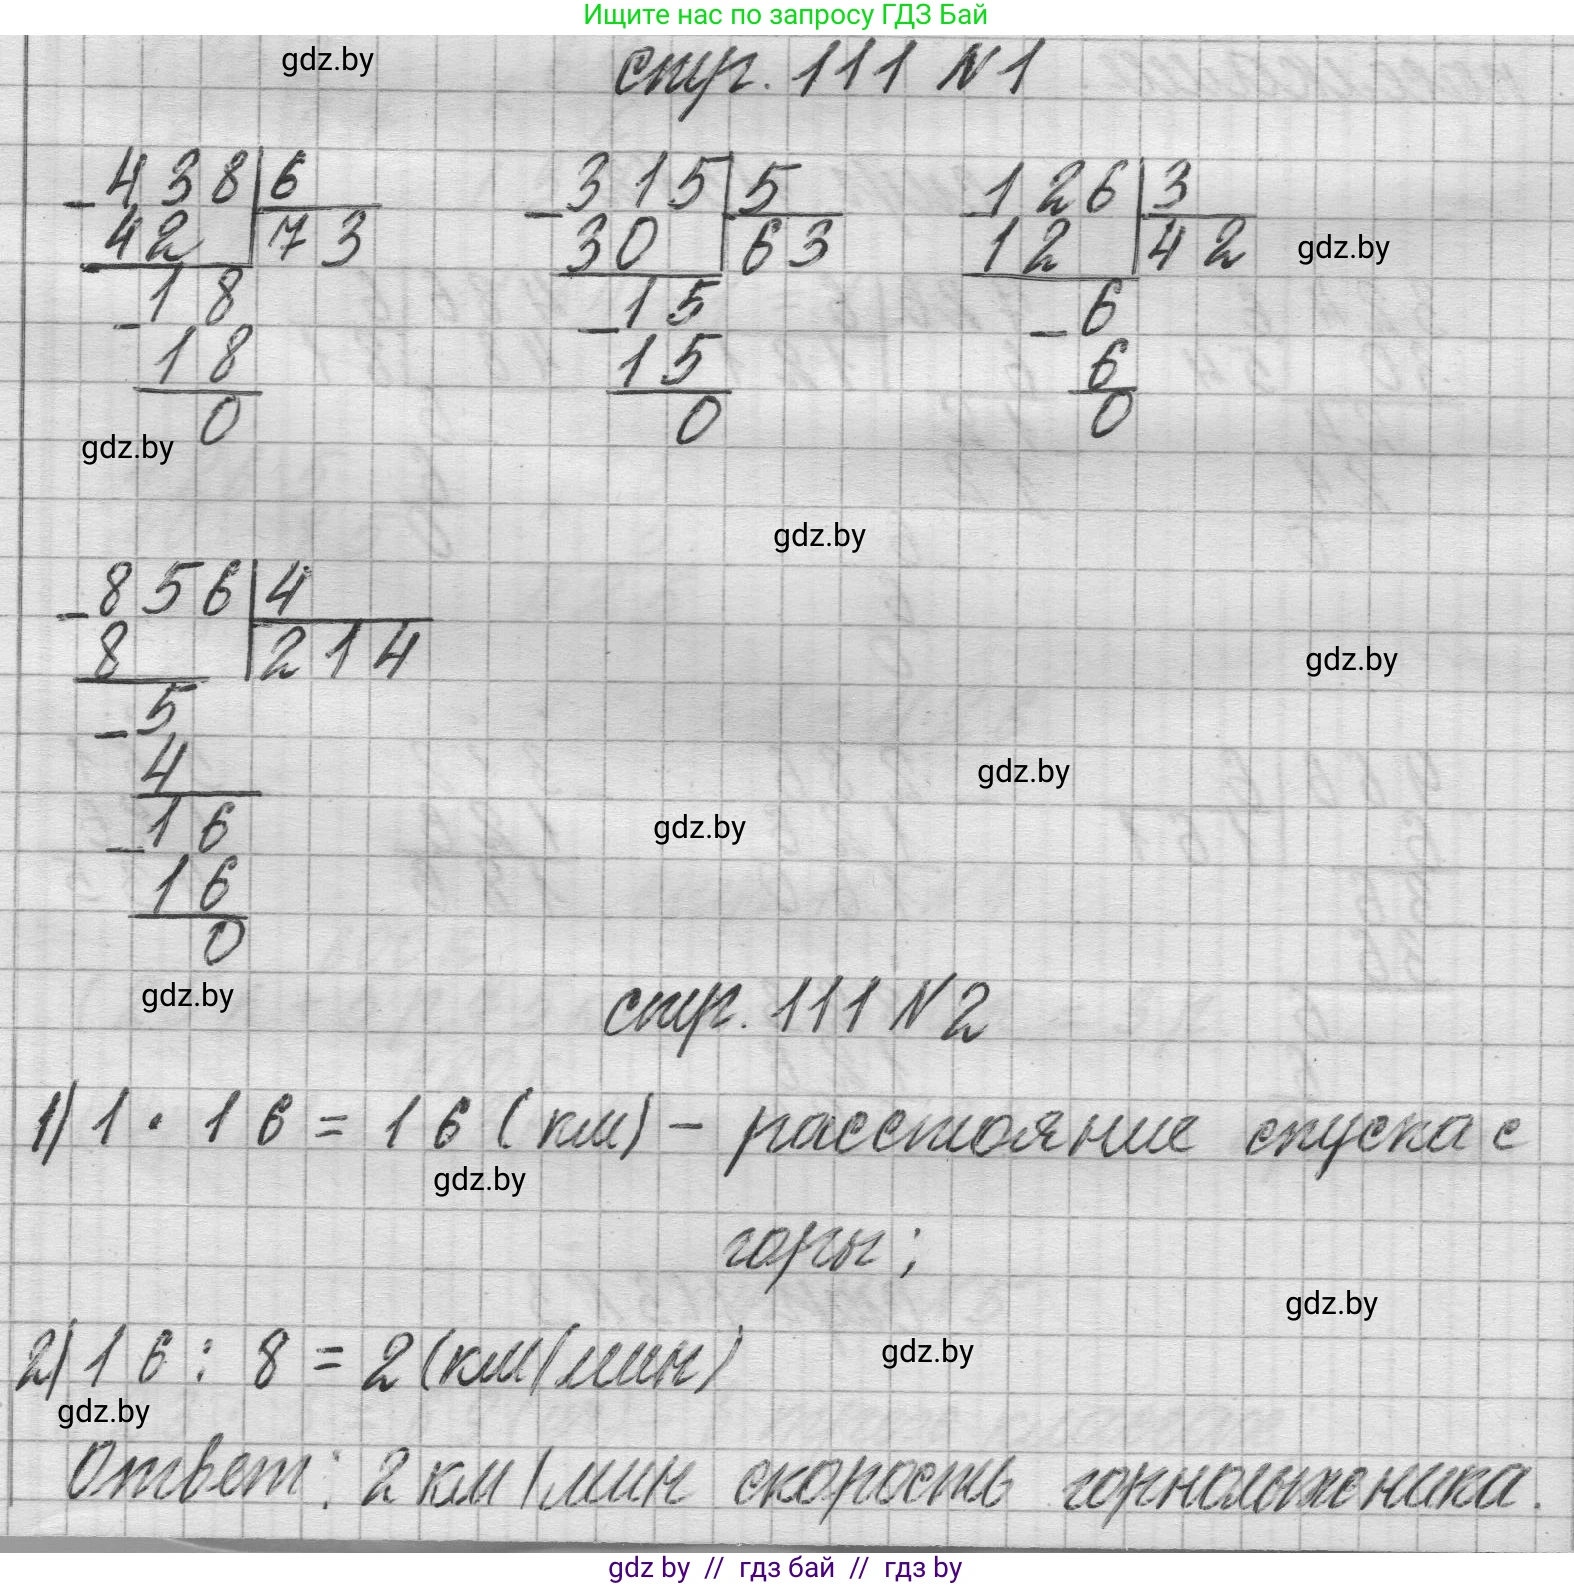 Ищите нас по запросу ГДЗ Бай
gdz.by
стр. 111 N1
- 438 | 6
42 | 73
- 18
18
0
- 315 | 5
30 | 63
- 15
15
0
- 126 | 3
12 | 42
- 6
6
0
gdz.by
gdz.by
gdz.by
- 856 | 4
8 | 214
- 5
4
- 16
16
0
gdz.by
gdz.by
gdz.by
gdz.by
стр. 111 N2
1) 1 · 16 = 16 (км) - расстояние спуска с
gdz.by
горы;
gdz.by
2) 16 : 8 = 2 (км/мин)
gdz.by
gdz.by
Ответ: 2 км/мин скорость горнолыжника.
gdz by // гдз бай // гдз by